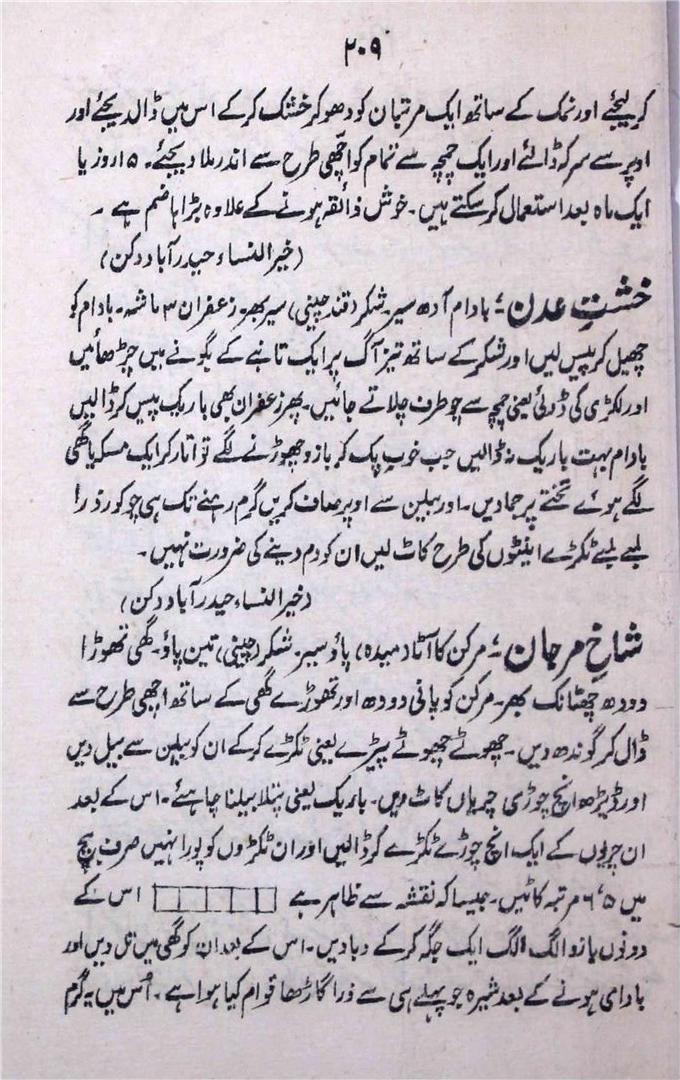 ۲۰۹
کر لیجئے اور نمک کے ساتھ ایک مرتبان کو دھو کر خشک کر کے اس میں ڈالدیجئے اور
اوپر سے سرکہ ڈالئے اور ایک چمچہ سے تمام کو اچھی طرح سے اندر ملا دیجئے۔ ۱۵ روز یا
ایک ماہ بعد استعمال کر سکتے ہیں۔ خوش ذائقہ ہونے کے علاوہ بڑا ہاضم ہے ۔
(خیر النساء حیدر آباد دکن)
خشتِ عدن :۔ بادام آدھ سیر۔ شکر (قند چینی) سیر بھر۔ زعفران ۳ ماشہ۔ بادام کو
چھیل کر پیس لیں اور شکر کے ساتھ تیز آگ پر ایک تانبے کے بگونے میں چڑھائیں
اور لکڑی کی ڈوئی یعنی چمچے سے چو طرف چلاتے جائیں۔ پھر زعفران بھی باریک پیس کر ڈالیں
بادام بہت باریک نہ ڈالیں جب خوب پک کر بازو چھوڑنے لگے تو اتار کر ایک مسکہ یا گھی
لگے ہوئے تختے پر جما دیں۔ اور بیلن سے اوپر صاف کریں گرم رہنے تک ہی چوکور ذرا
لمبے لمبے ٹکڑے اینٹوں کی طرح کاٹ لیں ان کو دم دینے کی ضرورت نہیں ۔
(خیر النساء حیدر آباد دکن)
شاخِ مرجان :۔ مرکن کا آٹا (میدہ) پاؤ سیر۔ شکر (چینی) تین پاؤ۔ گھی تھوڑا
دودھ چھٹانک بھر۔ مرکن کو پانی دودھ اور تھوڑے گھی کے ساتھ اچھی طرح سے
ڈال کر گوندھ دیں۔ چھوٹے چھوٹے پیڑے یعنی ٹکڑے کر کے ان کو بیلن سے بیل دیں
اور ڈیڑھ انچ چوڑی چریاں کاٹ دیں۔ باریک یعنی پتلا بیلنا چاہئے۔ اس کے بعد
ان چریوں کے ایک انچ چوڑے ٹکڑے کر ڈالیں اور ان ٹکڑوں کو پورا نہیں صرف بیچ
میں ۵، ۶ مرتبہ کاٹیں۔ جیسا کہ نقشہ سے ظاہر ہے اس کے
دونوں بازو الگ الگ ایک جگہ کر کے دبا دیں۔ اس کے بعد ان کو گھی میں تل دیں اور
بادامی ہونے کے بعد شیرہ جو پہلے ہی سے ذرا گاڑھا قوام کیا ہوا ہے۔ اُس میں یہ گرم